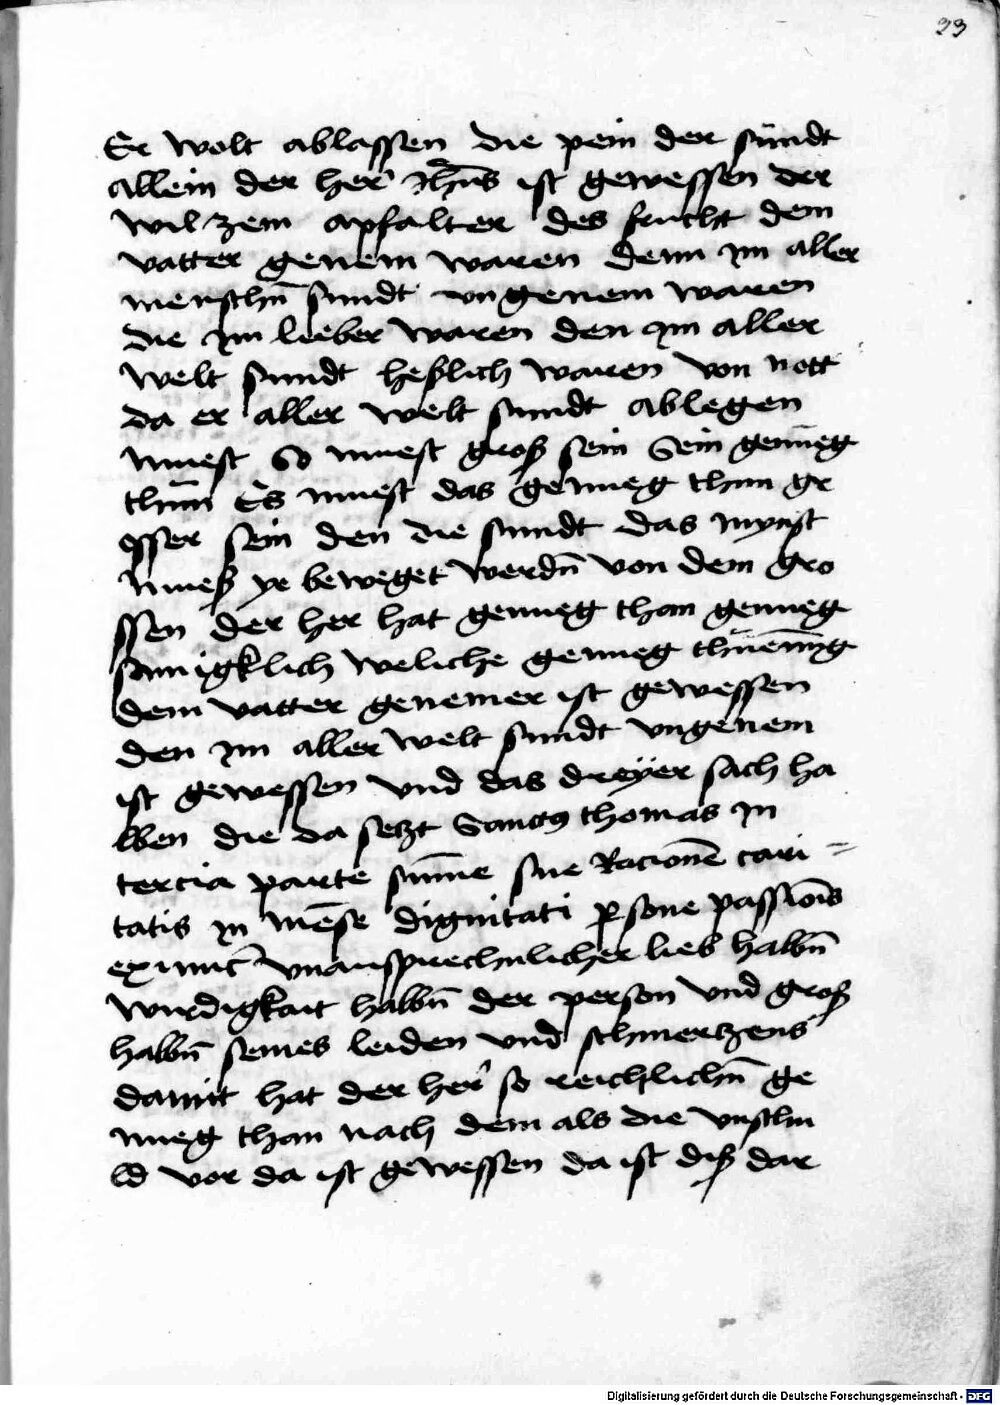 33
Er wolt ablassen die pein der sündt
allein der her Jhūs ist gewessen der
wil zem apfalter des frucht dem
vatter genem waren denn jm aller
menschn̄ sundt vngenem waren
die jm lieber waren den jm aller
welt sundt heßlich waren von nott
da er aller welt sundt ablegen
muest so muest groß sein sein genueg
thun̄ Es muest das genueg thun gr
osser sein den die sundt das mynst
mueß yr beweget werdn̄ von dem gro
ssen der her hat genueg than genueg
samigklich weliche genueg thuen̄ng
dem vatter genemer ist gewessen
den jm aller welt sundt vngenem
ist gewessen vnd das dreyer sach ha
lben die da setzt Sanctus thomas jn
tercia parte sum̄e sue Racione cari =
tatis jn mēse dignitati psone passiōis
eximie vnausprechnlicher lieb halbn̄
wirdigkait halbn̄ der person vnd groß
halbn̄ seines leiden vnd schmertzens
damit hat der her so reichlichn̄ ge
nueg than nach dem als die vnschu
ld vor da ist gewessen da ist diß dar
Digitalisierung gefördert durch die Deutsche Forschungsgemeinschaft - DFG